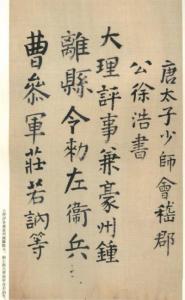 唐太子少師會稽郡
公徐浩書
大理評事兼豪州鍾
離縣令勅左衛兵
曹叅軍莊若訥等